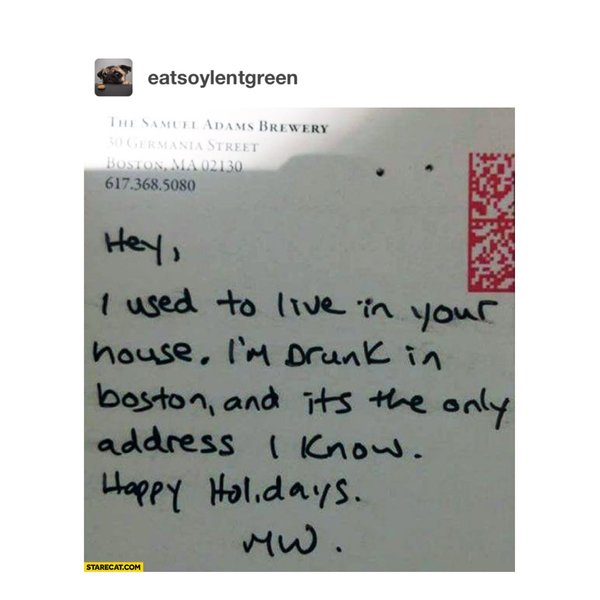 eatsoylentgreen
THE SAMUEL ADAMS BREWERY
30 GERMANIA STREET
BOSTON, MA 02130
617.368.5080
Hey,
I used to live in your
house. I'm Drunk in
boston, and its the only
address I Know.
Happy Holidays.
MW.
STARECAT.COM